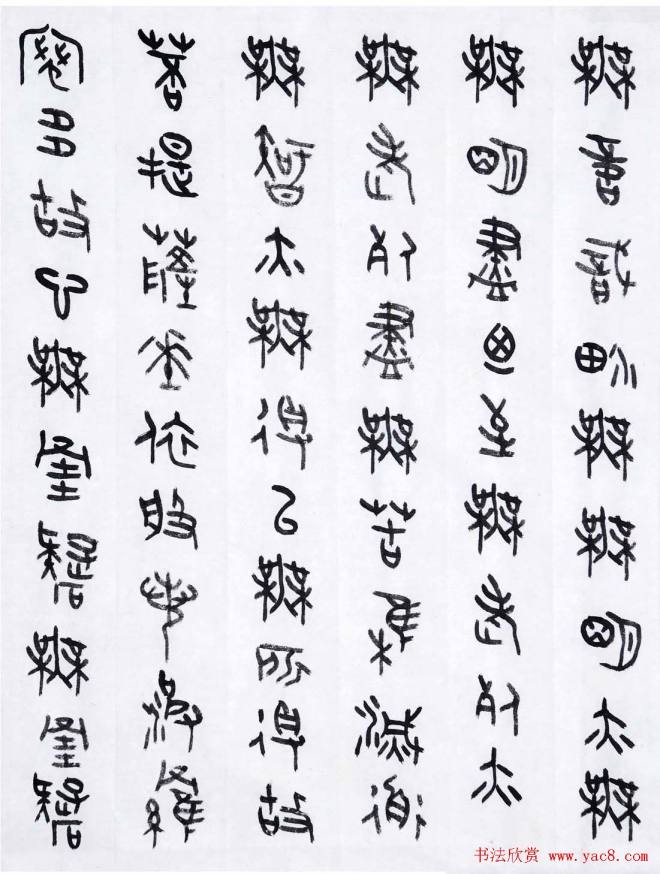 無意識界無無明亦無
無明盡乃至無老死亦
無老死盡無苦集滅道
無智亦無得以無所得故
菩提薩埵依般若波羅
蜜多故心無罣礙無罣礙
书法欣赏 www.yac8.com